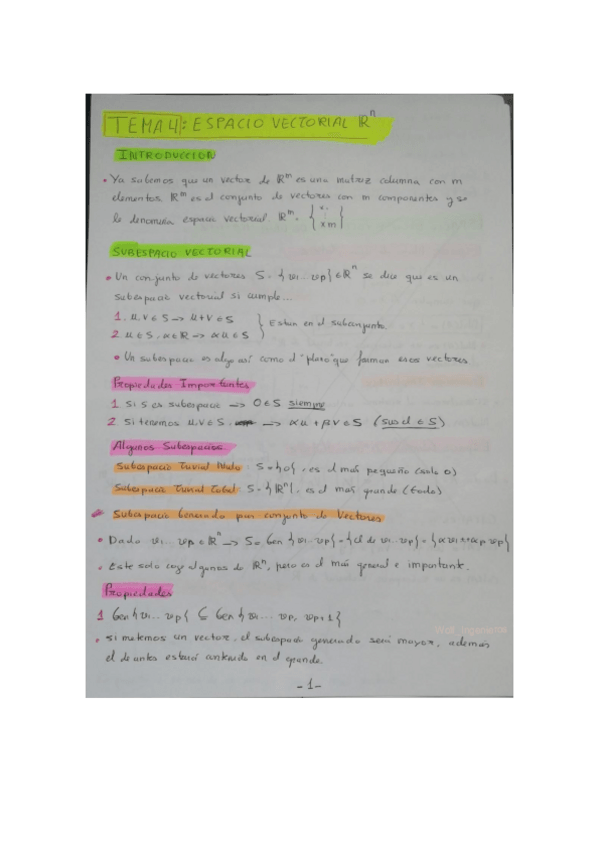 TEMA 4: ESPACIO VECTORIAL ℝⁿ
INTRODUCCION
• Ya sabemos que un vector de ℝᵐ es una matriz columna con m
elementos. ℝᵐ es el conjunto de vectores con m componentes y se
le denomina espacio vectorial. ℝᵐ = { x₁ ⋮ xm }
SUBESPACIO VECTORIAL
• Un conjunto de vectores S = {v1... vp} ∈ ℝⁿ se dice que es un
subespacio vectorial si cumple...
1. u, v ∈ S → u+v ∈ S
2. u ∈ S, α ∈ ℝ → αu ∈ S
} Estan en el subconjunto.
• Un subespacio es algo así como el "plano" que forman esos vectores
Propiedades Importantes
1 Si S es subespacio → 0 ∈ S siempre
2 Si tenemos u, v ∈ S → αu + βv ∈ S (su cl ∈ S)
Algunos Subespacios
Subespacio Trivial Nulo: S = {0}, es el más pequeño (solo 0)
Subespacio Trivial Total: S = {ℝⁿ}, es el más grande (todo)
Subespacio Generado por conjunto de Vectores
• Dado v1... vp ∈ ℝⁿ → S = Gen {v1... vp} = {cl de v1... vp} = {αv1+...αp vp}
• Este solo coge algunos de ℝⁿ, pero es el más general e importante.
Propiedades
1 Gen {v1... vp} ⊆ Gen {v1... vp, vp+1}
• Si metemos un vector, el subespacio generado será mayor, además
el de antes estará contenido en el grande.
-1-